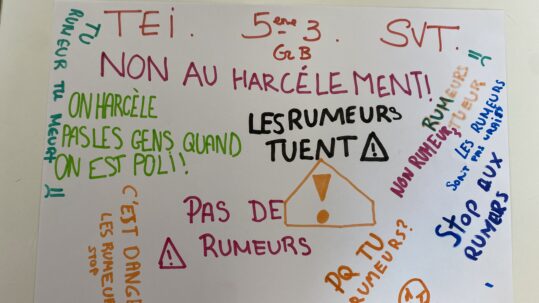 TEI. 5ème 3. SVT.
Gr B
NON AU HARCÉLEMENT!
TU
RUMEUR TU MEURT !!
ON HARCÈLE
PAS LES GENS QUAND
ON EST POLI!
LES RUMEURS
TUENT ⚠
RUMEURS
TUEUR
NON RUMEURS
LES RUMEURS
SONT PAS VRAIES
STOP AUX
RUMEURS
PAS DE
⚠ RUMEURS
!
C'EST DANGE
LES RUMEUR
STOP
PQ TU
RUMEURS?